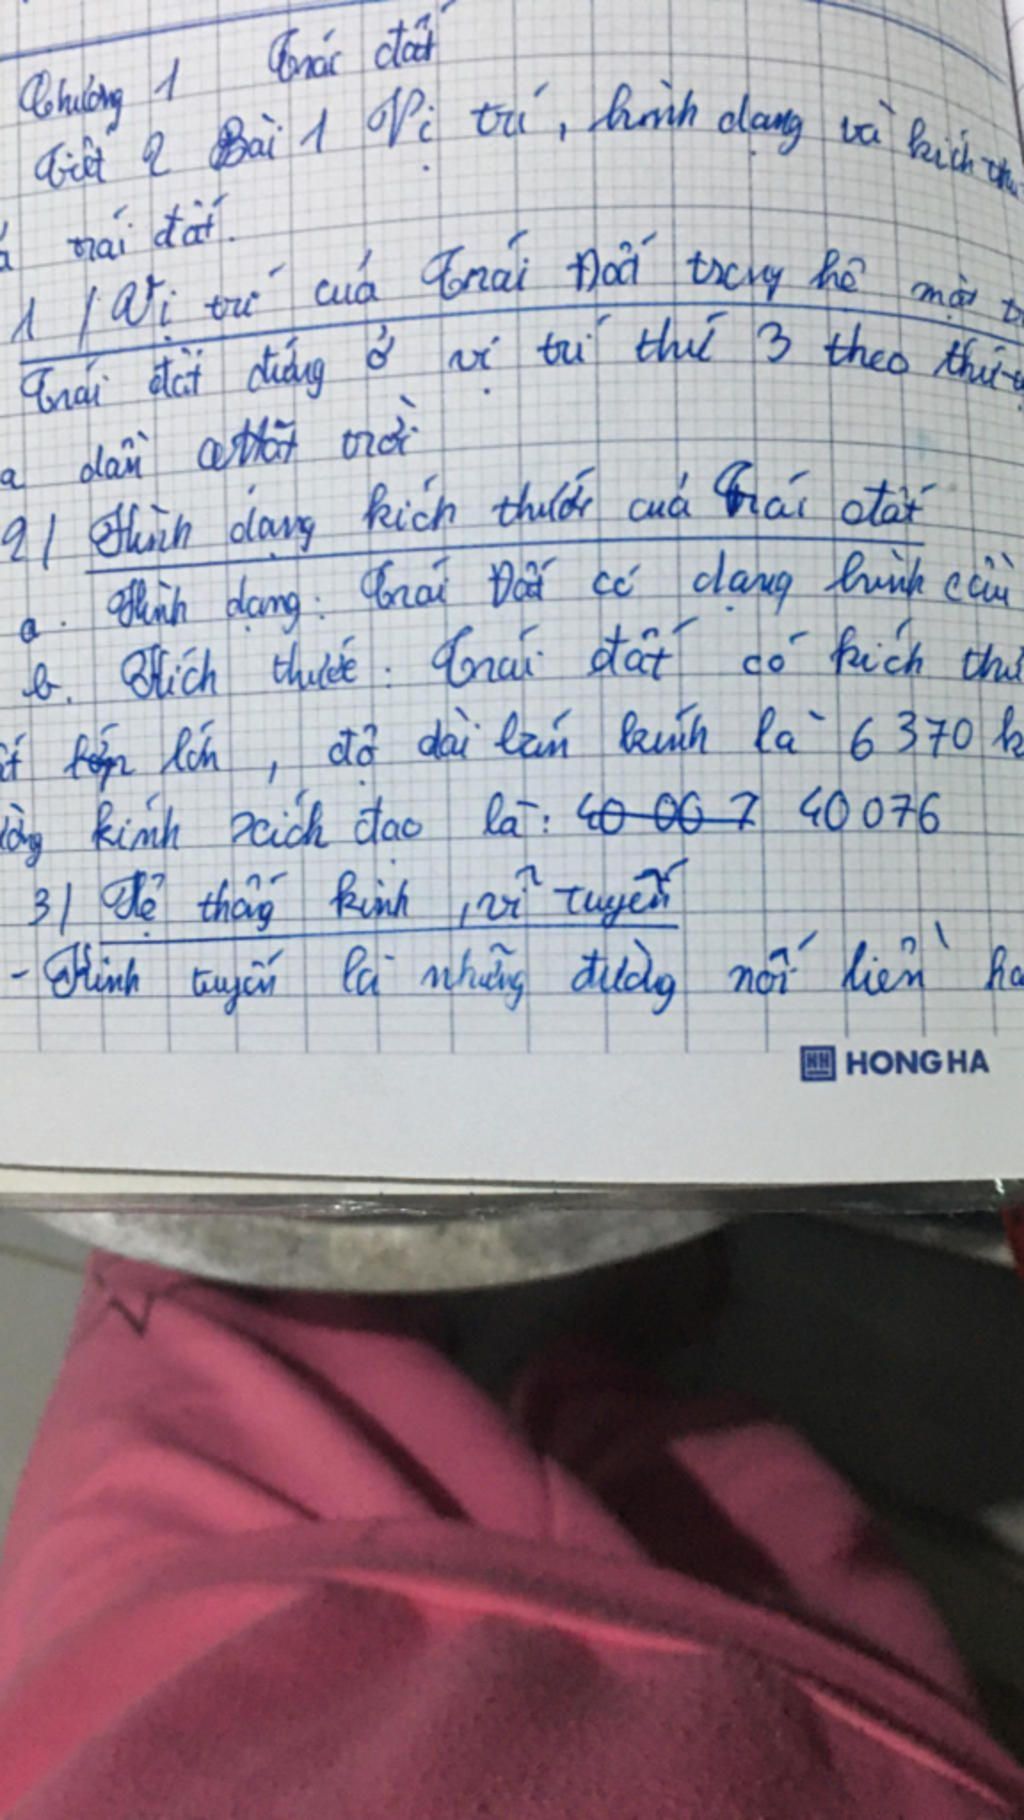 Chương 1 Trái đất
Tiết 2 Bài 1 Vị trí, hình dạng và kích thư
trái đất.
1/ Vị trí của Trái Đất trong hệ mặt tr
Trái đất đứng ở vị trí thứ 3 theo thứ
a dần Mặt trời
2/ Hình dạng kích thước của Trái đất
a. Hình dạng: Trái Đất có dạng hình cầu
b. Kích thước: Trái đất có kích thư
lớn, độ dài bán kính là 6 370 k
kính xích đạo là: 40 00 7 40 076
3/ Hệ thống kinh, vĩ tuyến
- Kinh tuyến là những đường nối liền ha
HONG HA